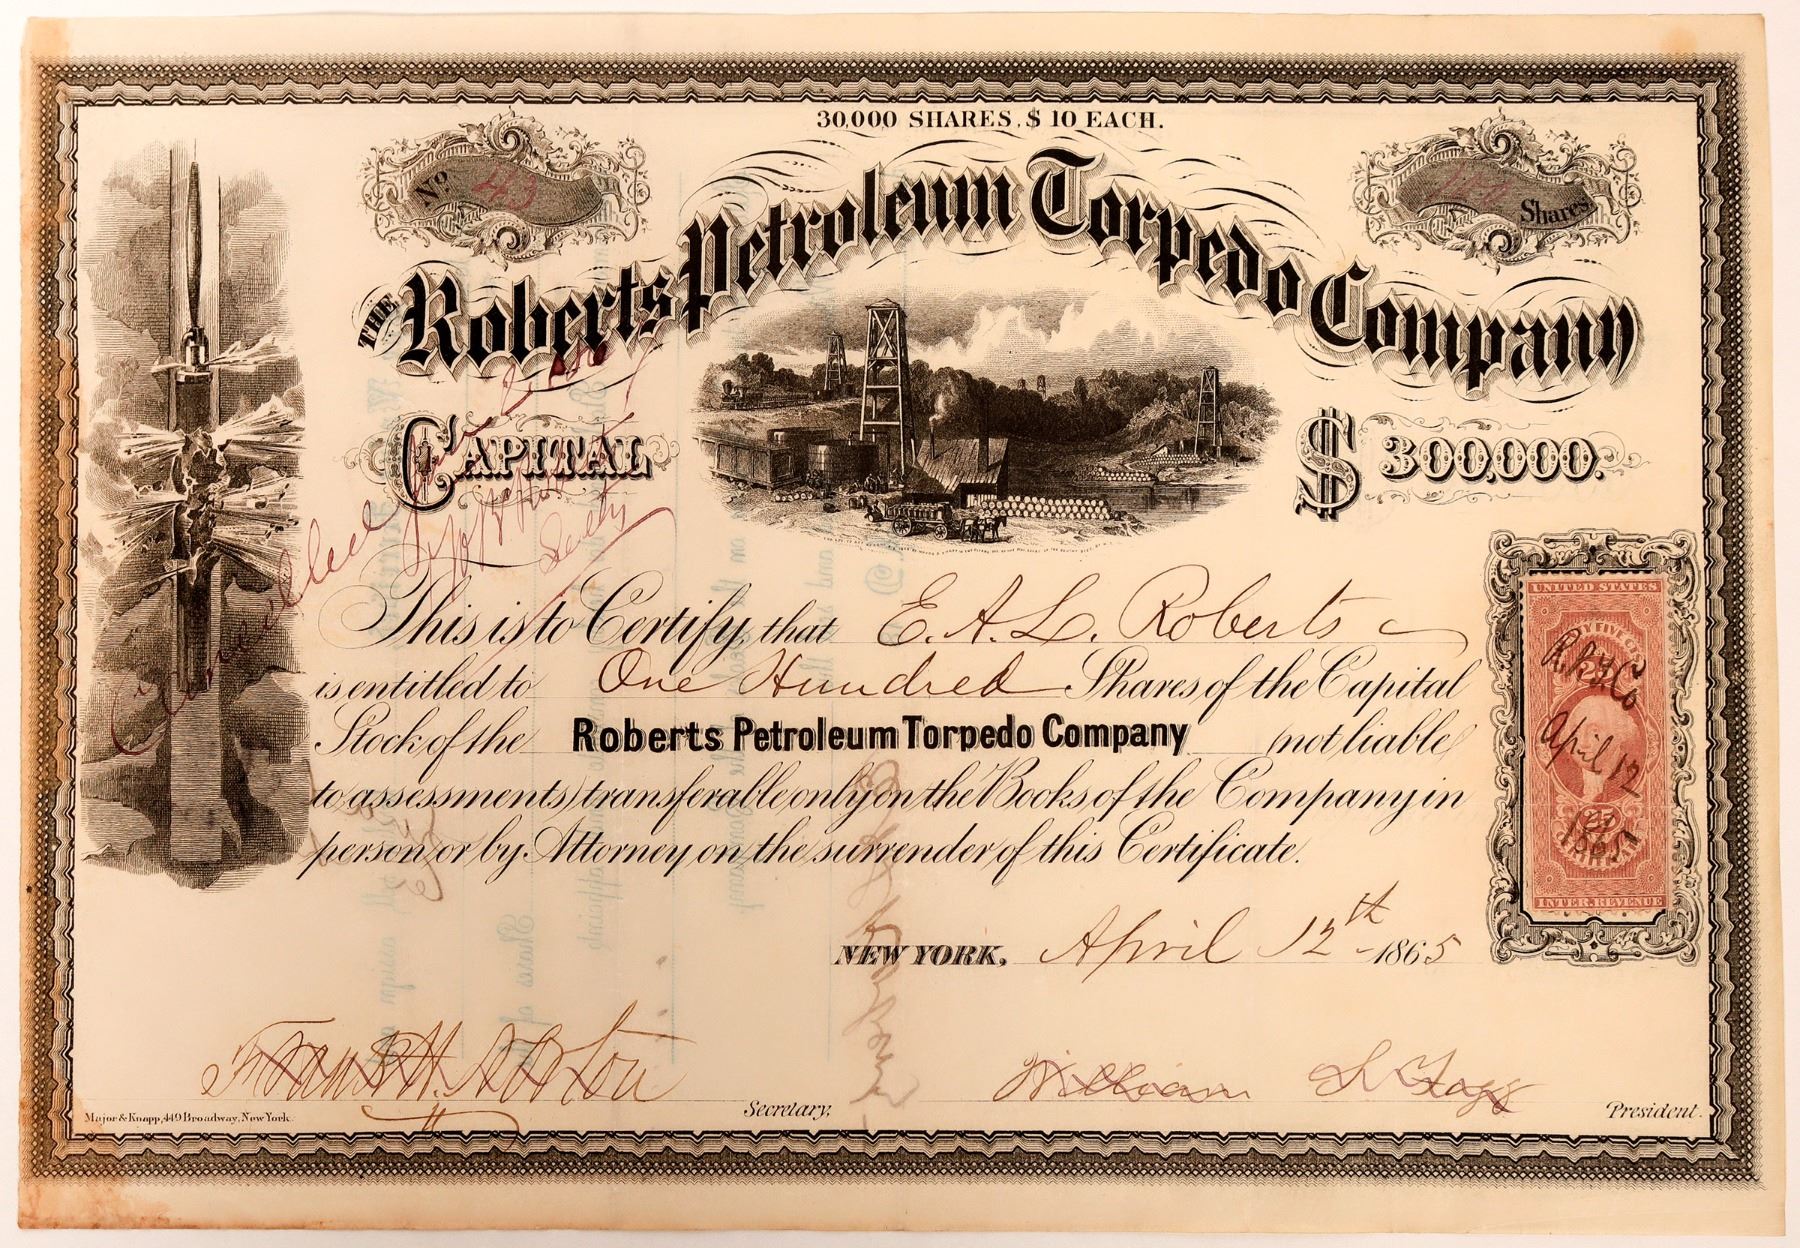 30,000 SHARES, $ 10 EACH.
No. 42
100 Shares.
THE Roberts Petroleum Torpedo Company
CAPITAL
$ 300,000.
This is to Certify, that E. A. L. Roberts
is entitled to One Hundred Shares of the Capital
Stock of the Roberts Petroleum Torpedo Company (not liable
to assessments) transferable only on the Books of the Company in
person or by Attorney on the surrender of this Certificate.
NEW YORK, April 12th 1865
UNITED STATES
R.P.T. Co
April 12
1865
INTER. REVENUE
Secretary.
William
President.
Major & Knapp, 449 Broadway, New York.